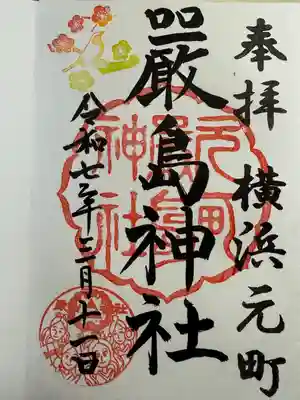 奉拝 横浜元町
嚴島神社
令和七年三月十一日
元町
嚴島
神社